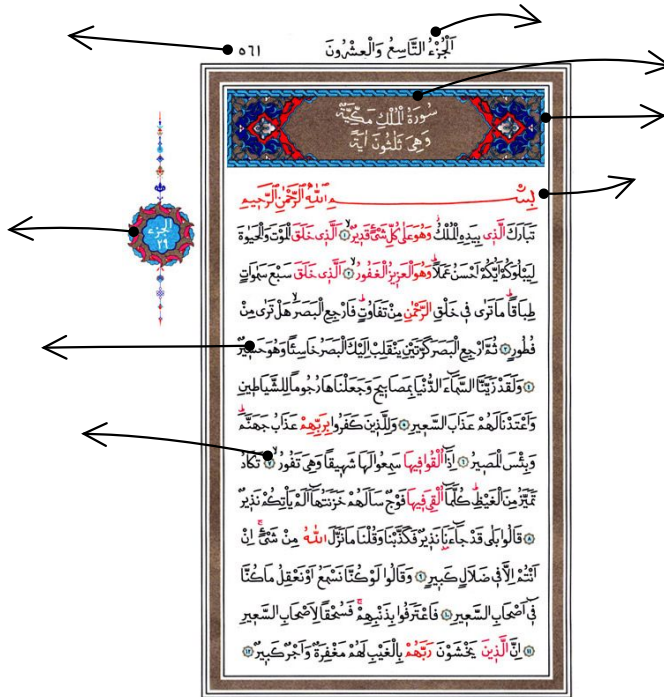 اَلْجُزْءُ التَّاسِعُ وَالْعِشْرُونَ
٥٦١
سُورَةُ الْمُلْكِ مَكِّيَّةٌ
وَهِيَ ثَلٰثُونَ اٰيَةً
بِسْمِ اللّٰهِ الرَّحْمٰنِ الرَّحٖيمِ
تَبَارَكَ الَّذٖى بِيَدِهِ الْمُلْكُ وَهُوَ عَلٰى كُلِّ شَيْءٍ قَدٖيرٌ ﴿١﴾ اَلَّذٖى خَلَقَ الْمَوْتَ وَالْحَيٰوةَ
لِيَبْلُوَكُمْ اَيُّكُمْ اَحْسَنُ عَمَلًا وَهُوَ الْعَزٖيزُ الْغَفُورُ ﴿٢﴾ اَلَّذٖى خَلَقَ سَبْعَ سَمٰوَاتٍ
طِبَاقًا مَا تَرٰى فٖى خَلْقِ الرَّحْمٰنِ مِنْ تَفَاوُتٍ فَارْجِعِ الْبَصَرَ هَلْ تَرٰى مِنْ
فُطُورٍ ﴿٣﴾ ثُمَّ ارْجِعِ الْبَصَرَ كَرَّتَيْنِ يَنْقَلِبْ اِلَيْكَ الْبَصَرُ خَاسِئًا وَهُوَ حَسٖيرٌ
﴿٤﴾ وَلَقَدْ زَيَّنَّا السَّمَٓاءَ الدُّنْيَا بِمَصَابٖيحَ وَجَعَلْنَاهَا رُجُومًا لِلشَّيَاطٖينِ
وَاَعْتَدْنَا لَهُمْ عَذَابَ السَّعٖيرِ ﴿٥﴾ وَلِلَّذٖينَ كَفَرُوا بِرَبِّهِمْ عَذَابُ جَهَنَّمَ
وَبِئْسَ الْمَصٖيرُ ﴿٦﴾ اِذَٓا اُلْقُوا فٖيهَا سَمِعُوا لَهَا شَهٖيقًا وَهِيَ تَفُورُ ﴿٧﴾ تَكَادُ
تَمَيَّزُ مِنَ الْغَيْظِ كُلَّمَٓا اُلْقِيَ فٖيهَا فَوْجٌ سَاَلَهُمْ خَزَنَتُهَٓا اَلَمْ يَاْتِكُمْ نَذٖيرٌ
﴿٨﴾ قَالُوا بَلٰى قَدْ جَٓاءَنَا نَذٖيرٌ فَكَذَّبْنَا وَقُلْنَا مَا نَزَّلَ اللّٰهُ مِنْ شَيْءٍ اِنْ
اَنْتُمْ اِلَّا فٖى ضَلَالٍ كَبٖيرٍ ﴿٩﴾ وَقَالُوا لَوْ كُنَّا نَسْمَعُ اَوْ نَعْقِلُ مَا كُنَّا
فٖٓى اَصْحَابِ السَّعٖيرِ ﴿١٠﴾ فَاعْتَرَفُوا بِذَنْبِهِمْ فَسُحْقًا لِاَصْحَابِ السَّعٖيرِ
﴿١١﴾ اِنَّ الَّذٖينَ يَخْشَوْنَ رَبَّهُمْ بِالْغَيْبِ لَهُمْ مَغْفِرَةٌ وَاَجْرٌ كَبٖيرٌ ﴿١٢﴾
الجزء
٢٩